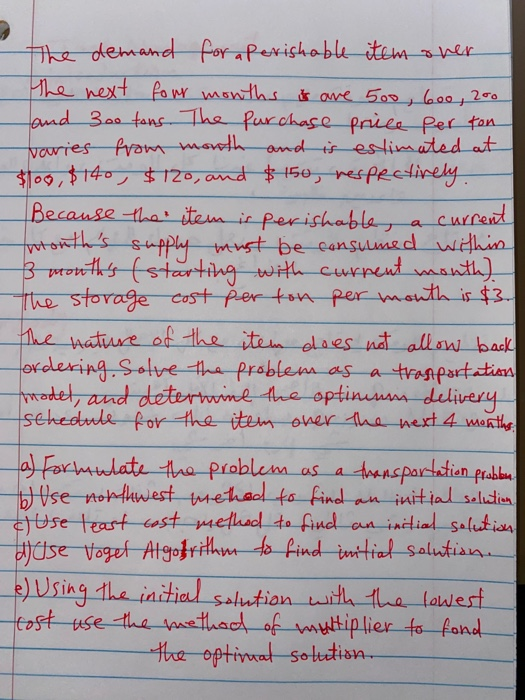 The demand for a perishable item over
the next four months is are 500, 600, 200
and 300 tons. The purchase price per ton
varies from month and is estimated at
$100, $140, $120, and $150, respectively.
Because the item is perishable, a current
month's supply must be consumed within
3 month's (starting with current month).
The storage cost per ton per month is $3.
The nature of the item does not allow back
ordering. Solve the problem as a transportation
model, and determine the optimum delivery
schedule for the item over the next 4 months.
a) Formulate the problem as a transportation problem
b) Use northwest method to find an initial solution
c) Use least cost method to find an initial solution
d) Use Vogel Algorithm to find initial solution.
e) Using the initial solution with the lowest
cost use the method of multiplier to fond
the optimal solution.